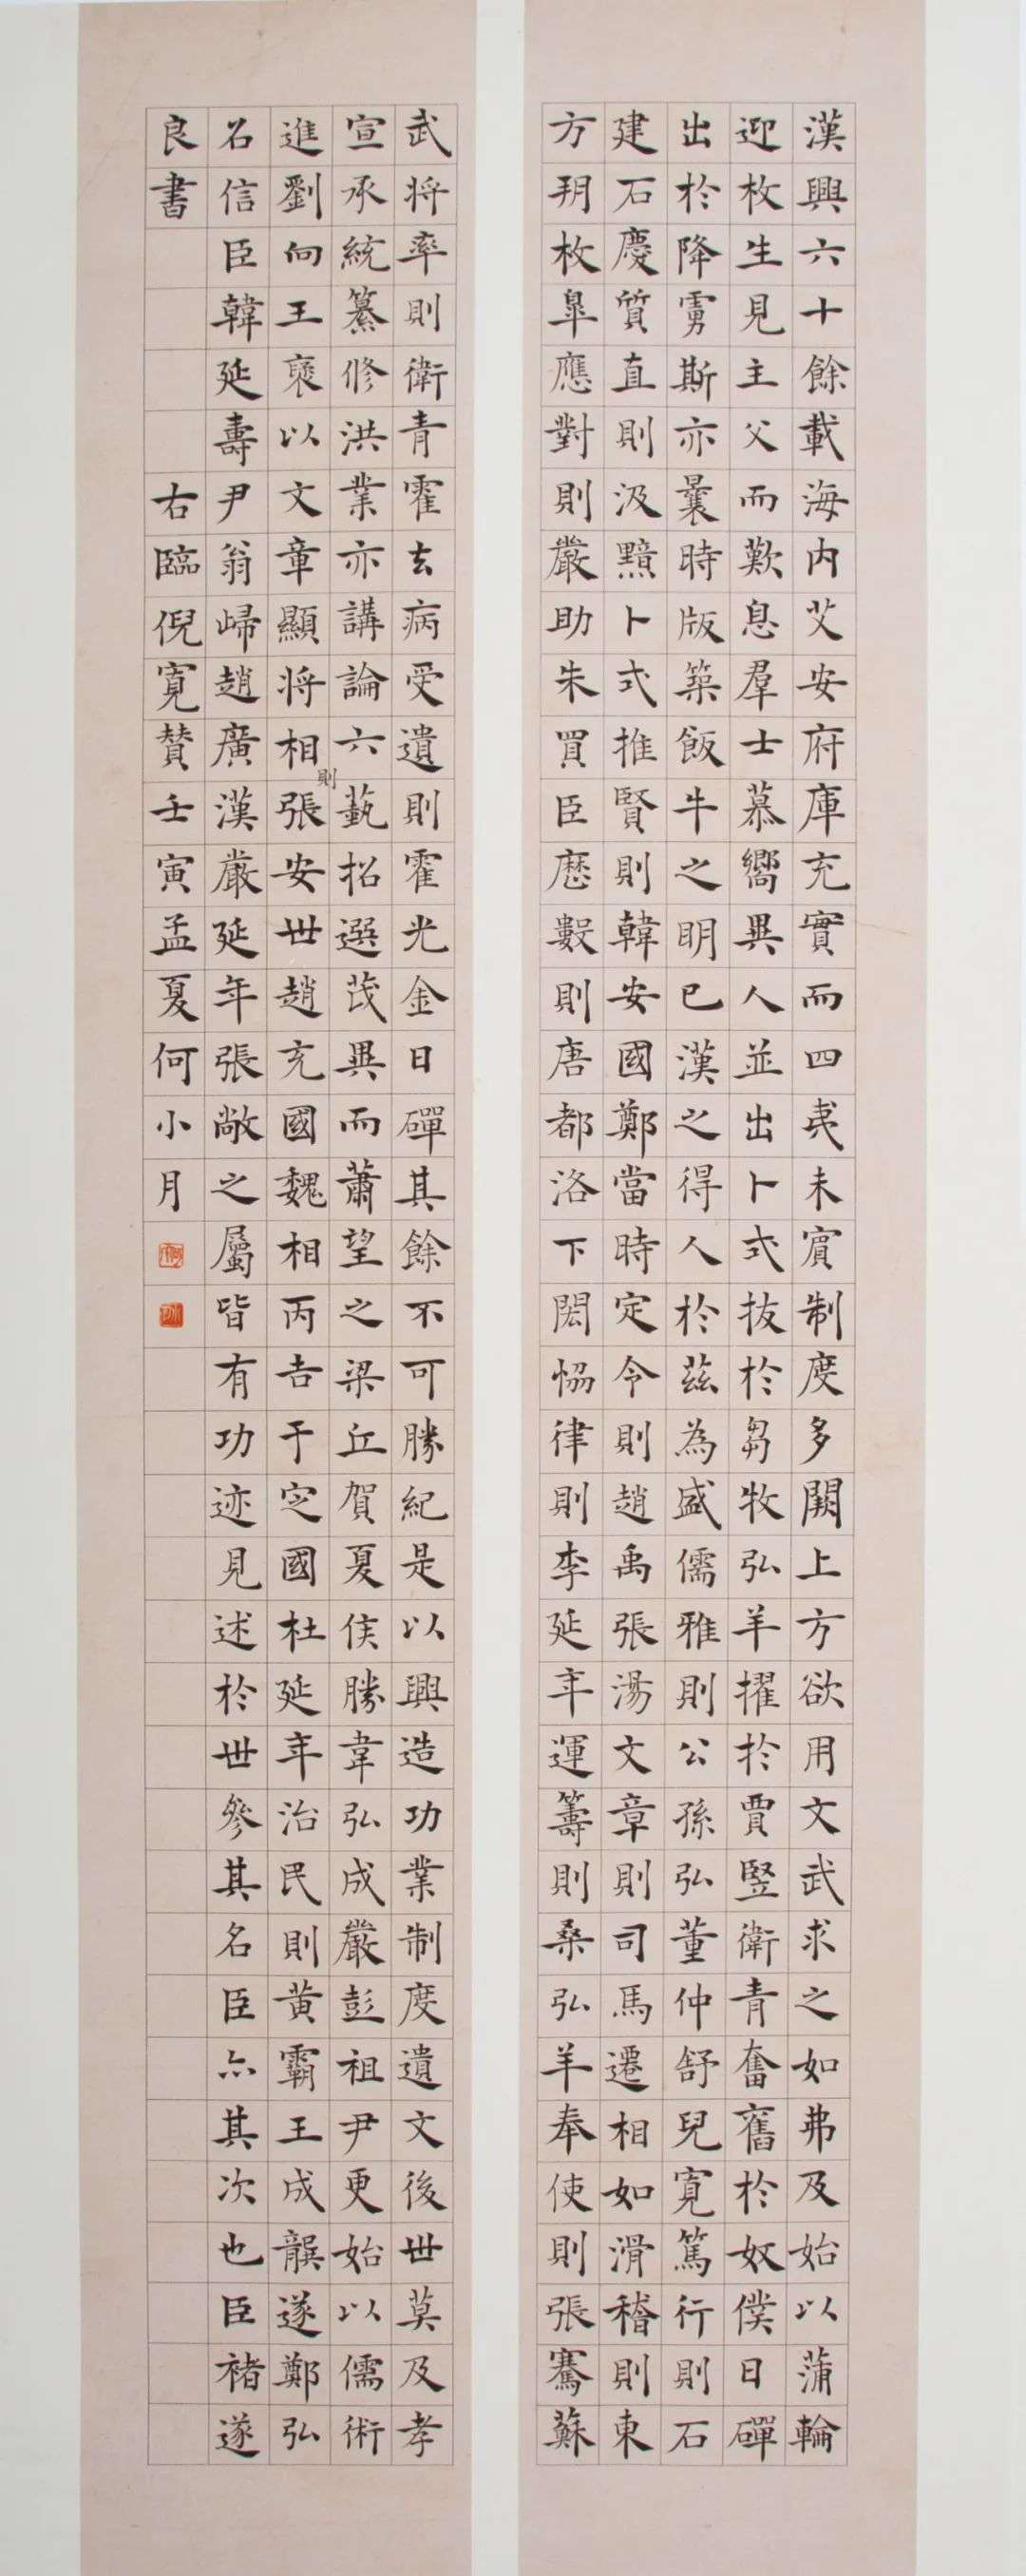 漢興六十餘載海内艾安府庫充實而四夷未賓制度多闕上方欲用文武求之如弗及始以蒲輪
迎枚生見主父而歎息羣士慕嚮異人並出卜式拔於芻牧弘羊擢於賈豎衛青奮舊於奴僕日磾
出於降虜斯亦曩時版築飯牛之明已漢之得人於茲為盛儒雅則公孫弘董仲舒兒寬篤行則石
建石慶質直則汲黯卜式推賢則韓安國鄭當時定令則趙禹張湯文章則司馬遷相如滑稽則東
方朔枚皐應對則嚴助朱買臣歷數則唐都洛下閎恊律則李延年運籌則桑弘羊奉使則張騫蘇
武將率則衛青霍去病受遺則霍光金日磾其餘不可勝紀是以興造功業制度遺文後世莫及孝
宣承統纂修洪業亦講論六藝招選茂異而蕭望之梁丘賀夏侯勝韋弘成嚴彭祖尹更始以儒術
進劉向王褒以文章顯將相則張安世趙充國魏相丙吉于定國杜延年治民則黄霸王成龔遂鄭弘
名信臣韓延壽尹翁歸趙廣漢嚴延年張敞之屬皆有功迹見述於世參其名臣亦其次也臣褚遂
良書 右臨倪寬贊壬寅孟夏何小月